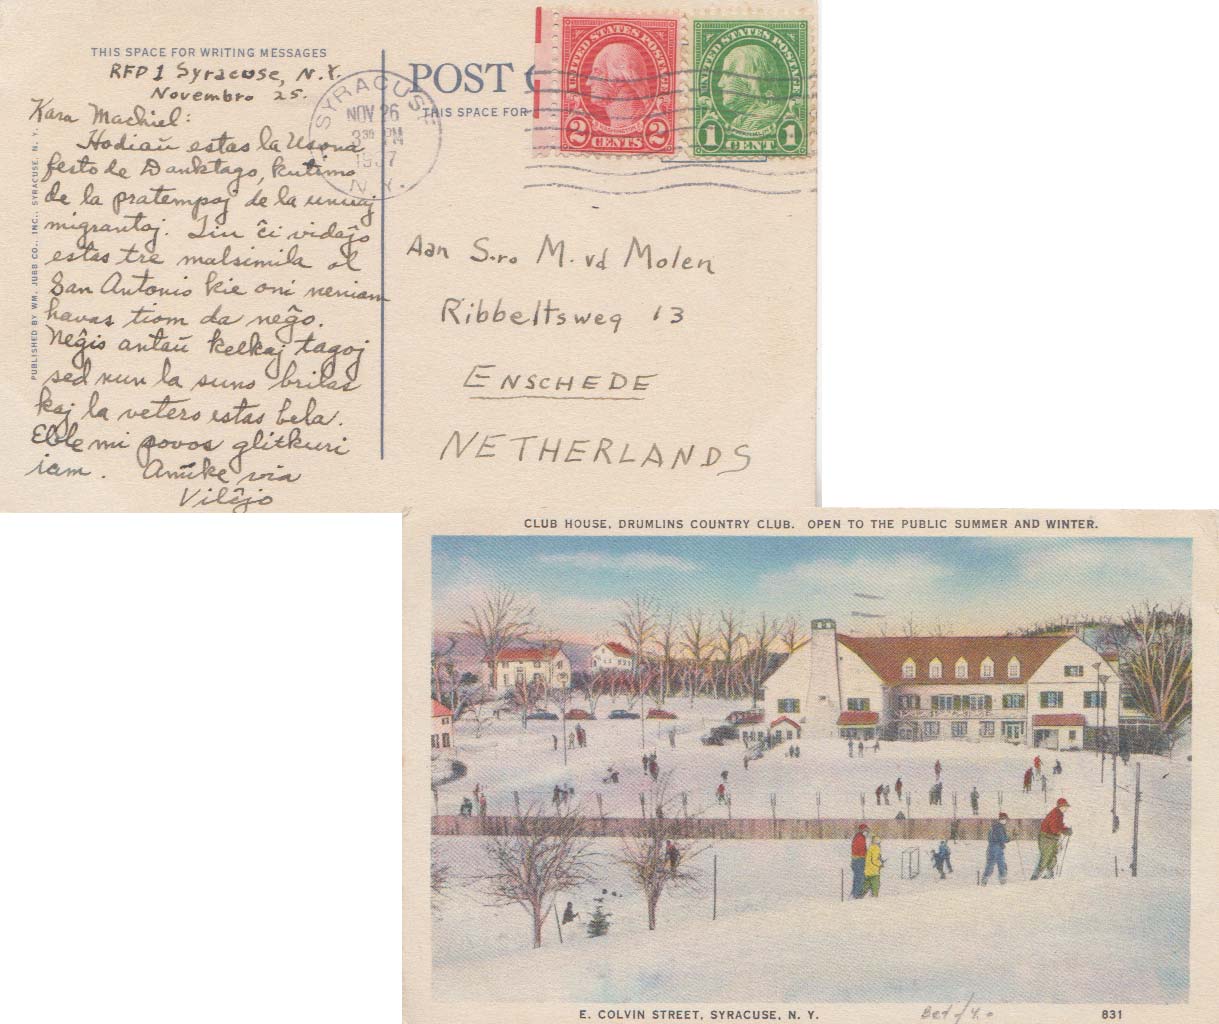 THIS SPACE FOR WRITING MESSAGES
RFD 1 Syracuse, N.Y.
Novembro 25.
Kara Machiel:
Hodiaŭ estas la Usona
festo de Danktago, kutimo
de la pratempoj de la unuaj
migrantoj. Tiu ĉi vidaĵo
estas tre malsimila al
San Antonio kie oni neniam
havas tiom da neĝo.
Neĝis antaŭ kelkaj tagoj
sed nun la suno brilas
kaj la vetero estas bela.
Eble mi povos glitkuri
iam. Amike via
Vilĉjo
PUBLISHED BY WM. JUBB CO., INC., SYRACUSE, N. Y.
POST
THIS SPACE FOR
SYRACUSE
NOV 26
3 30 PM
1937
N.Y.
UNITED STATES POSTAGE
2 CENTS 2
UNITED STATES POSTAGE
1 CENT 1
Aan S-ro M. vd Molen
Ribbeltsweg 13
ENSCHEDE
NETHERLANDS
CLUB HOUSE, DRUMLINS COUNTRY CLUB. OPEN TO THE PUBLIC SUMMER AND WINTER.
E. COLVIN STREET, SYRACUSE, N. Y.
831